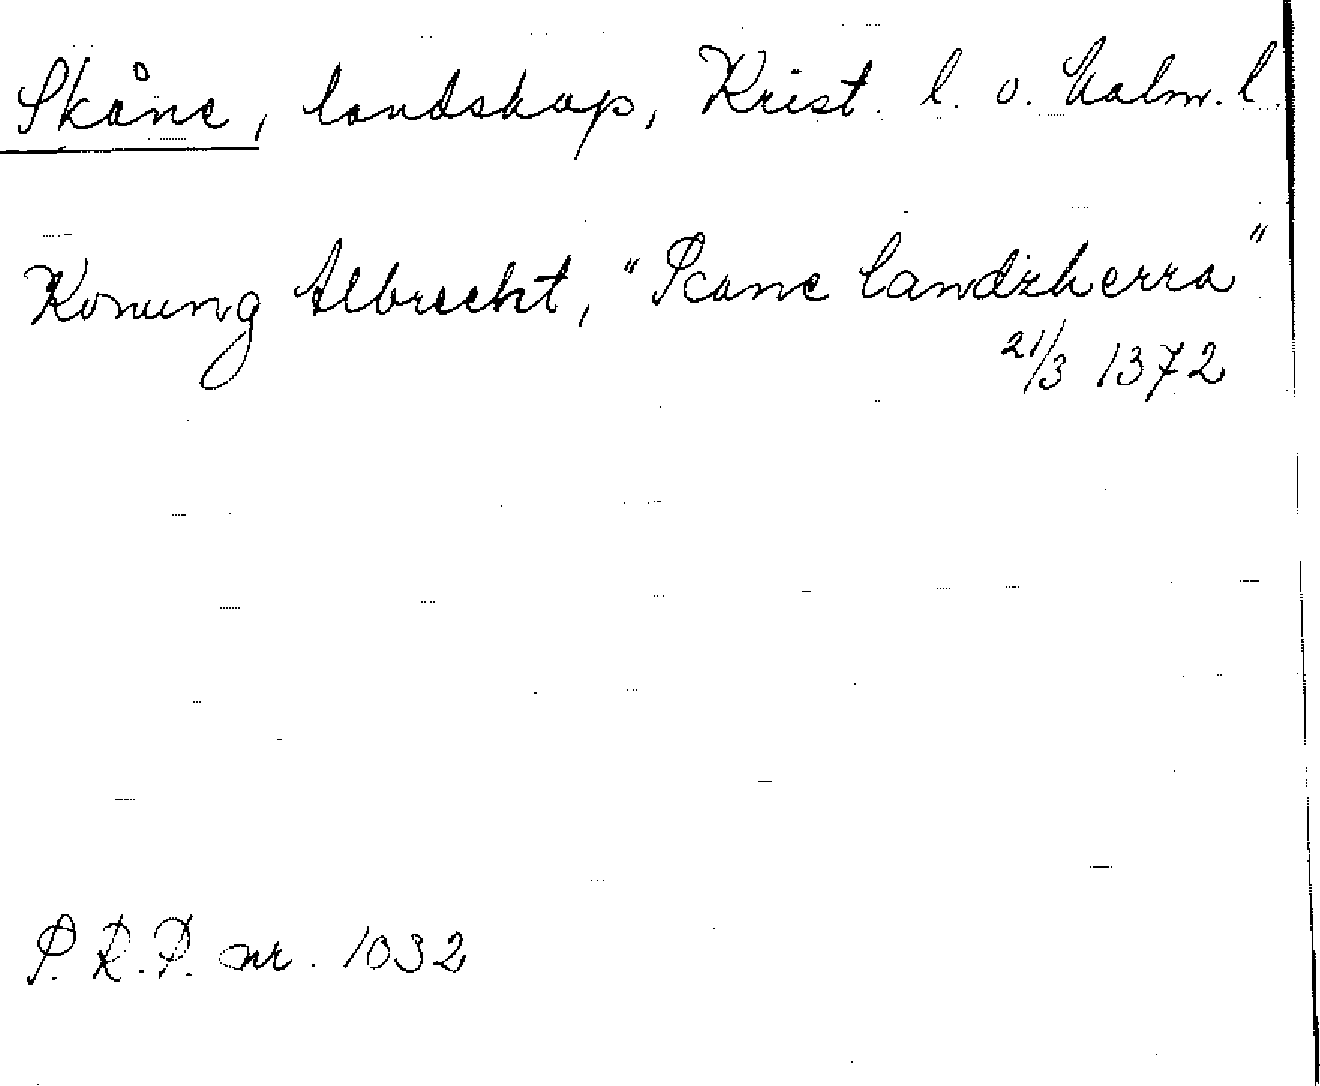 Skåne, landskap, Krist. l. o. Malm. l.
Konung Albrecht, "Scane landzherra"
21/3 1372
S. R. P. nr. 1032